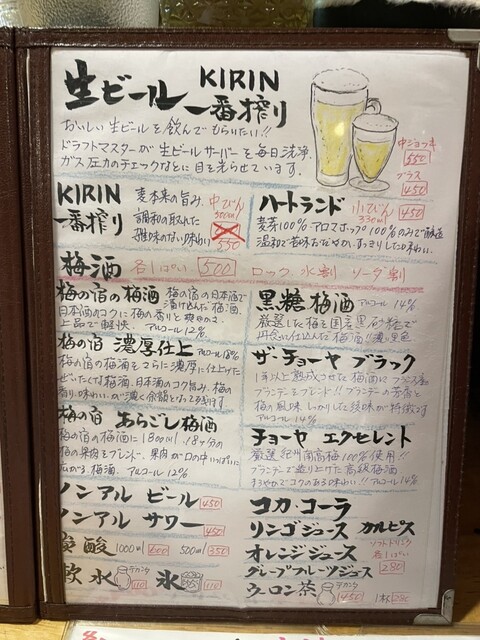 生ビール KIRIN 一番搾り
おいしい生ビールを飲んでもらいたい!!
ドラフトマスターが生ビールサーバーを毎日洗浄.
ガス圧力のチェックなどに目を光らせています.
中ジョッキ
550
グラス
450
KIRIN
一番搾り
麦本来の旨み.
調和の取れた
雑味のない味わい
中びん
500ml
550
ハートランド 小びん 330ml 450
麦芽100% アロマホップ100%のみで醸造
梅酒 各1ぱい 500 ロック 水割 ソーダ割
梅の宿の梅酒
梅の宿の日本酒で
漬け込んだ梅酒.
日本酒のコクに梅の香りと
上品で軽快. アルコール12%
黒糖梅酒 アルコール14%
厳選した梅と国産黒砂糖で
梅の宿 濃厚仕上 アルコール18%
梅の宿の梅酒をさらに濃厚に仕上げた
ぜいたくな梅酒.日本酒のコク旨み.梅の
ザ・チョーヤ ブラック
1年以上熟成させた梅酒にフランス産
ブランデーをブレンド!!ブランデーの芳香と
アルコール14%
梅の宿 あらごし梅酒
梅の果肉をブレンド. 果肉が口の中いっぱいに
広がる梅酒. アルコール12%
チョーヤ エクセレント
厳選紀州南高梅100%使用!!
ブランデーで造り上げた高級梅酒
まろやかでコクのある味わい!!アルコール14%
ノンアル ビール 450
ノンアル サワー 450
炭酸 1000ml 600 500ml 350
飲水 デカンタ 110 氷 110
コカ・コーラ
リンゴジュース カルピス
オレンジジュース
グレープフルーツジュース
ソフトドリンク
各1ぱい
280
ウーロン茶 デカンタ 450 1杯 280